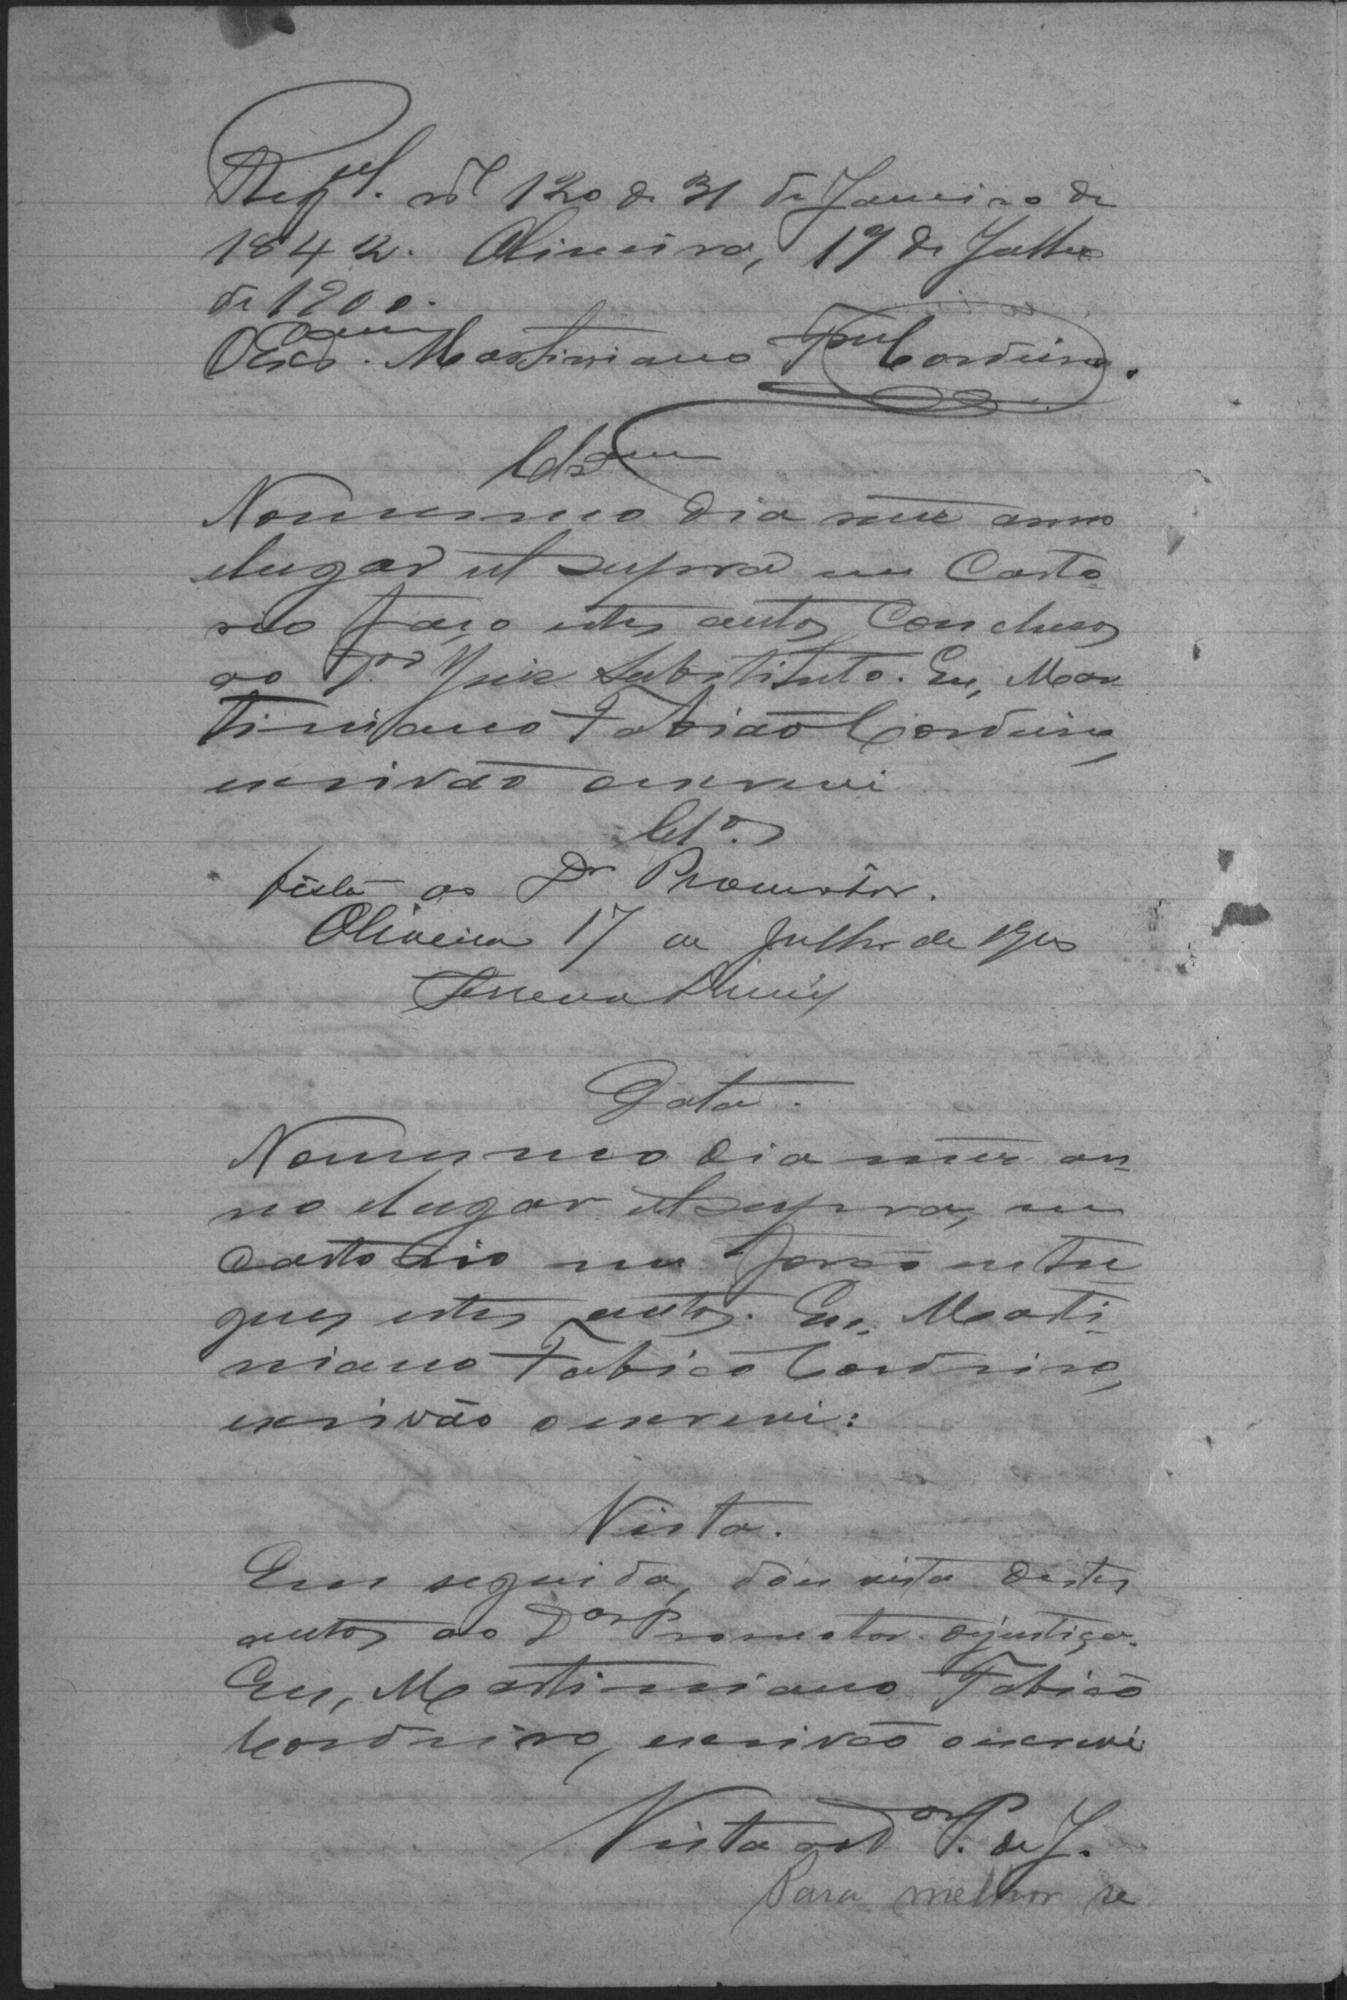 Regul. nº 120 de 31 de Janeiro de
1842. Oliveira, 17 de Julho
de 1900.
O Escrm. Martiniano Fam Cordeiro.
Clsam
No mesmo dia mez anno
e lugar ut supra em Carto
rio faço estes autos Conclusos
ao Dor Juiz Substituto. Eu, Mar
tiniano Fabião Cordeiro,
escrivão o escrevi
Clos
Vista ao Dr Promotor.
Oliveira 17 de Julho de 1900
Data.
No mesmo dia mez an-
no e lugar ut supra, em
cartorio me forão entre
gues estes autos. Eu, Marti-
niano Fabião Cordeiro,
escrivão o escrevi:
Vista.
Em seguida, dou vista destes
autos ao Dor Promotor de justiça.
Eu, Martiniano Fabião
Cordeiro, escrivão o escrevi
Vista ao Dor P. de J.
Para melhor se